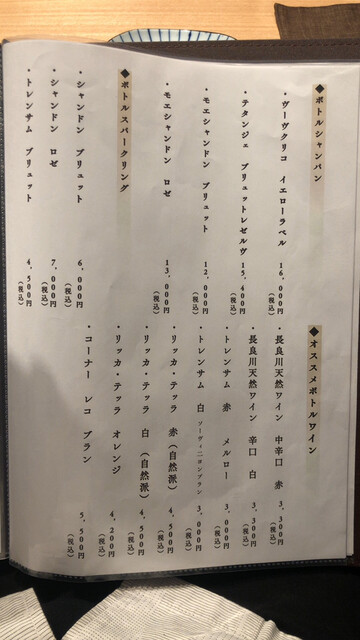 ◆ボトルシャンパン
・ヴーヴクリコ イエローラベル 16,000円(税込)
・テタンジェ ブリュットレゼルヴ 15,400円(税込)
・モエシャンドン ブリュット 12,000円(税込)
・モエシャンドン ロゼ 13,000円(税込)
◆ボトルスパークリング
・シャンドン ブリュット 6,000円(税込)
・シャンドン ロゼ 7,000円(税込)
・トレンサム ブリュット 4,500円(税込)
◆オススメボトルワイン
・長良川天然ワイン 中辛口 赤 3,300円(税込)
・長良川天然ワイン 辛口 白 3,300円(税込)
・トレンサム 赤 メルロー 3,000円(税込)
・トレンサム 白 ソーヴィニヨンブラン 3,000円(税込)
・リッカ・テッラ 赤(自然派) 4,500円(税込)
・リッカ・テッラ 白(自然派) 4,500円(税込)
・リッカ・テッラ オレンジ 4,200円(税込)
・コーナー レコ ブラン 5,500円(税込)